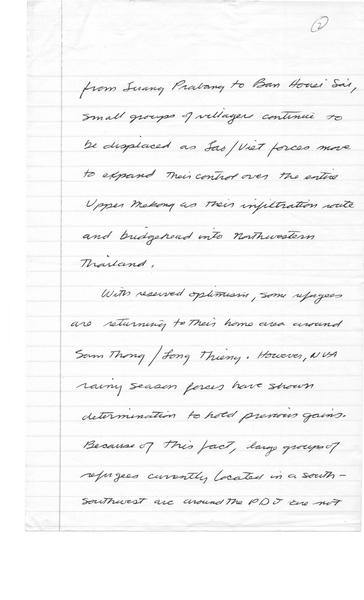 2
from Luang Prabang to Ban Houei Sai,
small groups of villagers continue to
be displaced as Lao/Viet forces move
to expand their control over the entire
Upper Mekong as their infiltration route
and bridgehead into Northwestern
Thailand.
With reserved optimism, some refugees
are returning to their home area around
Sam Thong / Long Thieng. However, NVA
rainy season forces have shown
determination to hold previous gains.
Because of this fact, large groups of
refugees currently located in a south-
southwest arc around the PDJ are not